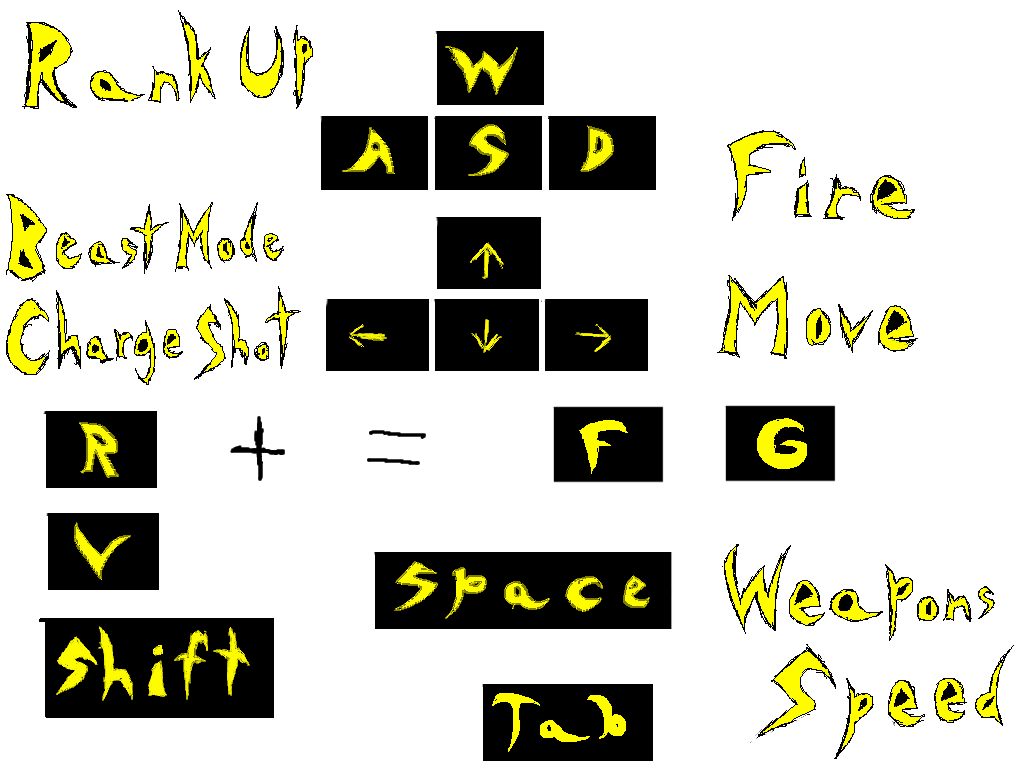 Rank Up
W
A S D
Fire
Beast Mode
↑
Charge Shot
← ↓ →
Move
R + = F G
V
Space
Weapons
Shift
Speed
Tab